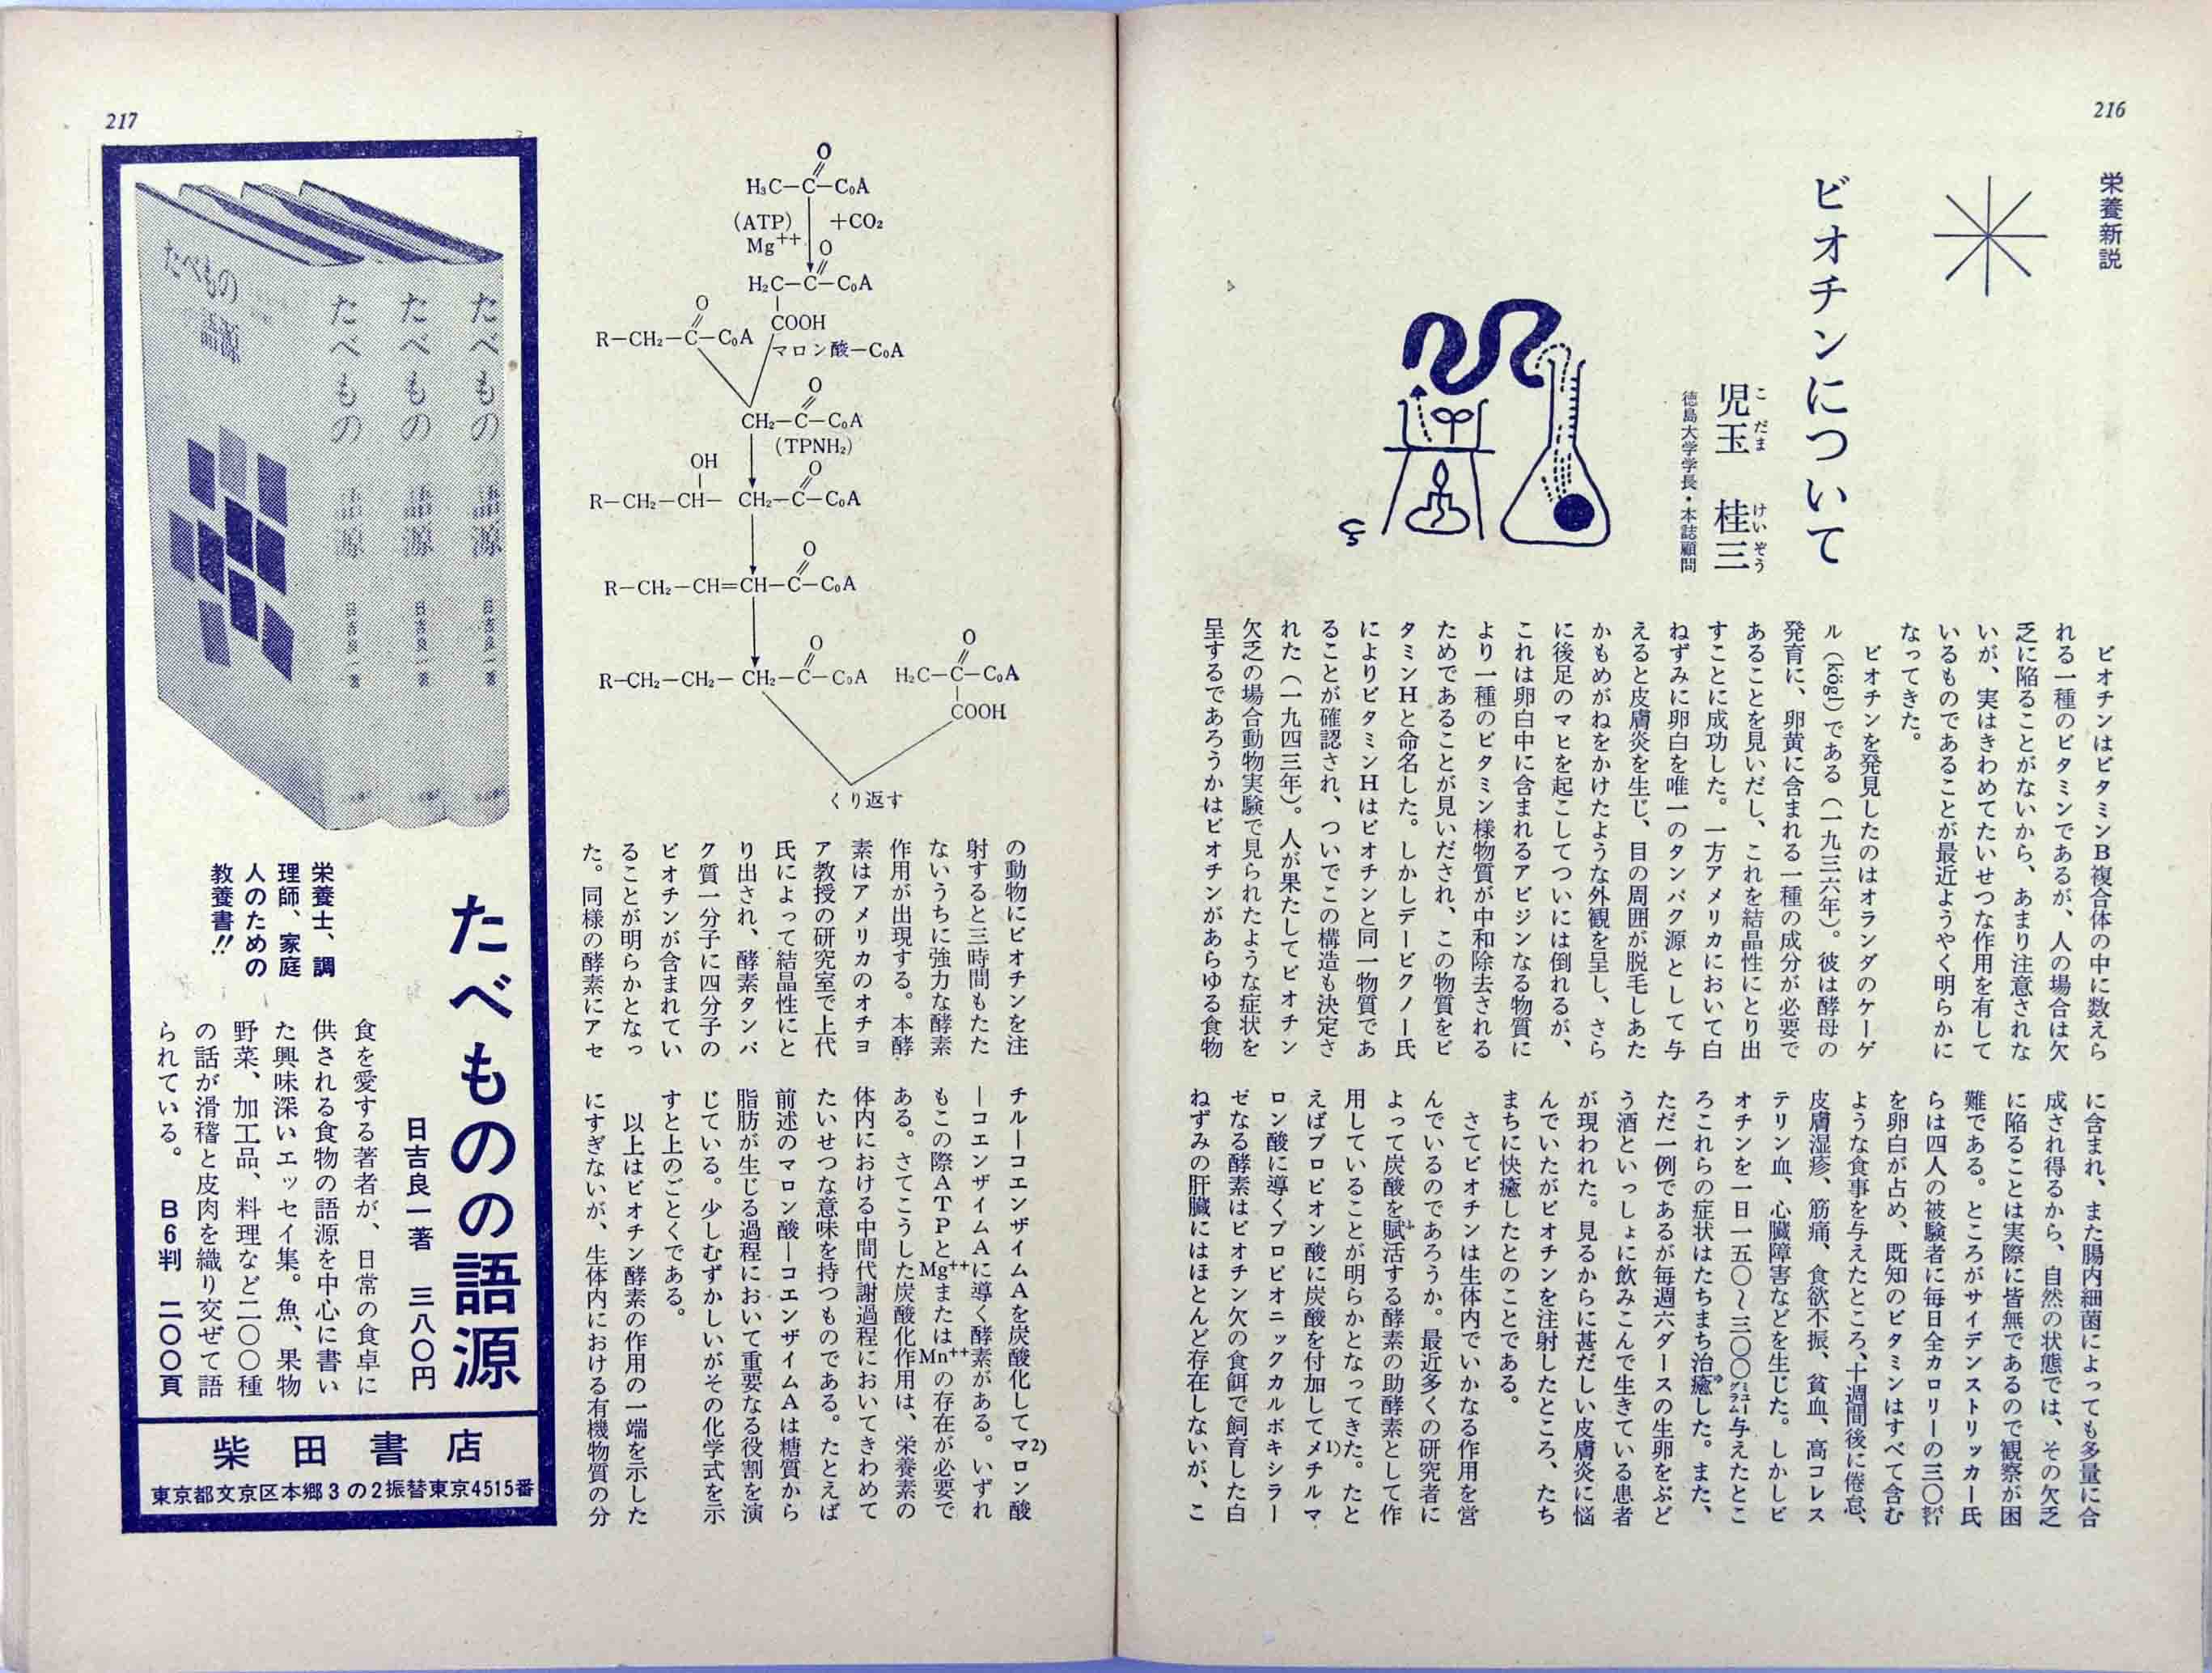 216
栄養新説
ビオチンについて
児玉　桂三
こ　だま　けい　ぞう
徳島大学学長・本誌顧問
ビオチンはビタミンB複合体の中に数えら
れる一種のビタミンであるが、人の場合は欠
乏に陥ることがないから、あまり注意されな
いが、実はきわめてたいせつな作用を有して
いるものであることが最近ようやく明らかに
なってきた。
ビオチンを発見したのはオランダのケーゲ
ル（kögl）である（一九三六年）。彼は酵母の
発育に、卵黄に含まれる一種の成分が必要で
あることを見いだし、これを結晶性にとり出
すことに成功した。一方アメリカにおいて白
ねずみに卵白を唯一のタンパク源として与
えると皮膚炎を生じ、目の周囲が脱毛しあた
かもめがねをかけたような外観を呈し、さら
に後足のマヒを起こしてついには倒れるが、
これは卵白中に含まれるアビジンなる物質に
より一種のビタミン様物質が中和除去される
ためであることが見いだされ、この物質をビ
タミンHと命名した。しかしデービクノー氏
によりビタミンHはビオチンと同一物質であ
ることが確認され、ついでこの構造も決定さ
れた（一九四三年）。人が果たしてビオチン
欠乏の場合動物実験で見られたような症状を
呈するであろうかはビオチンがあらゆる食物
に含まれ、また腸内細菌によっても多量に合
成され得るから、自然の状態では、その欠乏
に陥ることは実際に皆無であるので観察が困
難である。ところがサイデンストリッカー氏
らは四人の被験者に毎日全カロリーの三〇㌫
を卵白が占め、既知のビタミンはすべて含む
ような食事を与えたところ、十週間後に倦怠、
皮膚湿疹、筋痛、食欲不振、貧血、高コレス
テリン血、心臓障害などを生じた。しかしビ
オチンを一日一五〇～三〇〇ミューグラム与えたとこ
ろこれらの症状はたちまち治癒した。また、
ただ一例であるが毎週六ダースの生卵をぶど
う酒といっしょに飲みこんで生きている患者
が現われた。見るからに甚だしい皮膚炎に悩
んでいたがビオチンを注射したところ、たち
まちに快癒したとのことである。
さてビオチンは生体内でいかなる作用を営
んでいるのであろうか。最近多くの研究者に
よって炭酸を賦活する酵素の助酵素として作
用していることが明らかとなってきた。たと
えばプロピオン酸に炭酸を付加してメチルマ
1)
ロン酸に導くプロピオニックカルボキシラー
ゼなる酵素はビオチン欠の食餌で飼育した白
ねずみの肝臓にはほとんど存在しないが、こ
217
O
H₃C－C－CoA
(ATP)　＋CO₂
Mg⁺⁺
O
H₂C－C－CoA
COOH
マロン酸－CoA
O
R－CH₂－C－CoA
O
CH₂－C－CoA
(TPNH₂)
OH　O
R－CH₂－CH－ CH₂－C－CoA
O
R－CH₂－CH=CH－C－CoA
O
R－CH₂－CH₂－ CH₂－C－CoA
O
H₂C－C－CoA
COOH
くり返す
の動物にビオチンを注
射すると三時間もたた
ないうちに強力な酵素
作用が出現する。本酵
素はアメリカのオチョ
ア教授の研究室で上代
氏によって結晶性にと
り出され、酵素タンパ
ク質一分子に四分子の
ビオチンが含まれてい
ることが明らかとなっ
た。同様の酵素にアセ
チル－コエンザイムAを炭酸化してマロン酸
2)
－コエンザイムAに導く酵素がある。いずれ
もこの際ATPとMg⁺⁺またはMn⁺⁺の存在が必要で
ある。さてこうした炭酸化作用は、栄養素の
体内における中間代謝過程においてきわめて
たいせつな意味を持つものである。たとえば
前述のマロン酸－コエンザイムAは糖質から
脂肪が生じる過程において重要なる役割を演
じている。少しむずかしいがその化学式を示
すと上のごとくである。
以上はビオチン酵素の作用の一端を示した
にすぎないが、生体内における有機物質の分
たべもの　語源
たべもの　語源　日吉良一著
たべもの　語源　日吉良一著
たべもの　語源　日吉良一著
たべものの語源
日吉良一著　三八〇円
栄養士、調
理師、家庭
人のための
教養書!!
食を愛する著者が、日常の食卓に
供される食物の語源を中心に書い
た興味深いエッセイ集。魚、果物
野菜、加工品、料理など二〇〇種
の話が滑稽と皮肉を織り交ぜて語
られている。　B6判　二〇〇頁
柴田書店
東京都文京区本郷3の2振替東京4515番